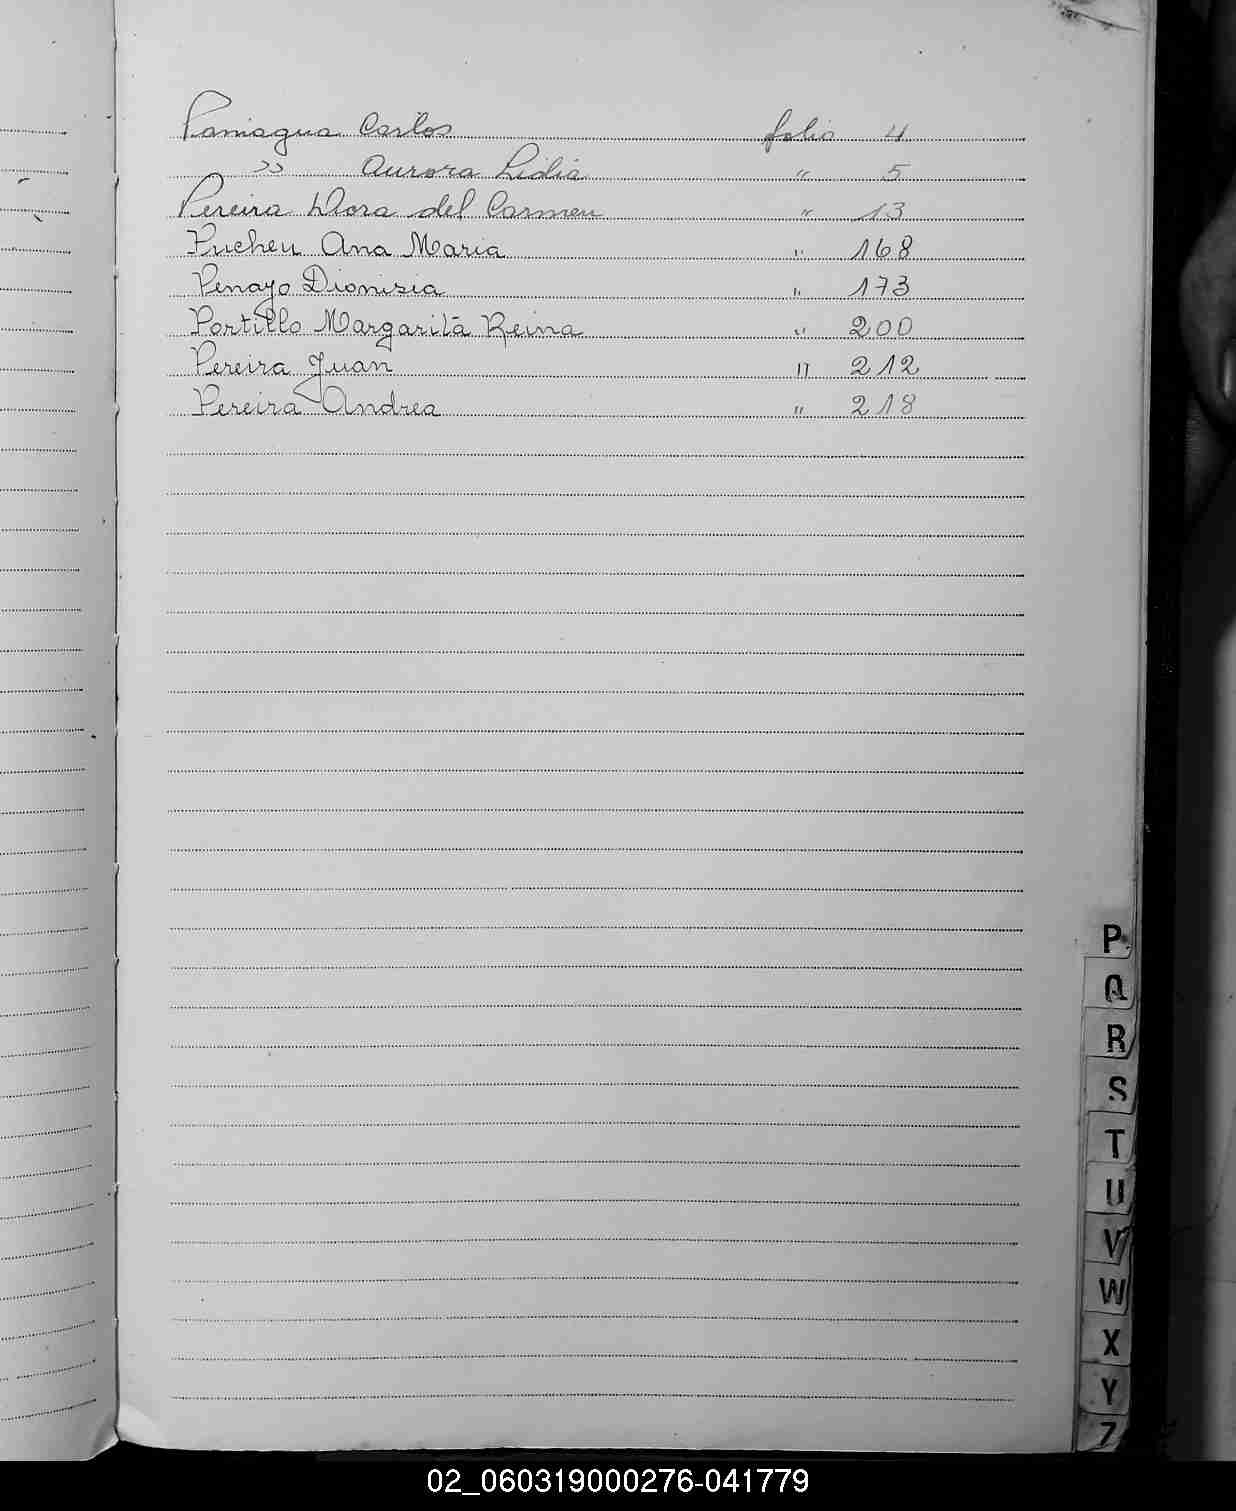 Paniagua Carlos folio 4
" Aurora Lidia " 5
Pereira Dora del Carmen " 13
Pucheu Ana Maria " 168
Penayo Dionisia " 173
Portillo Margarita Reina " 200
Pereira Juan " 212
Pereira Andrea " 218
P
Q
R
S
T
U
V
W
X
Y
Z
02_060319000276-041779